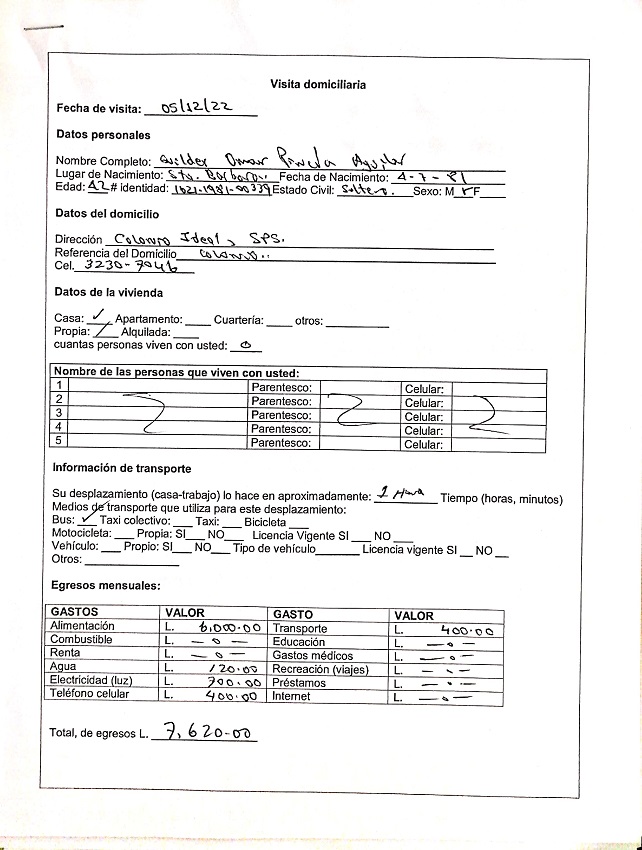 Visita domiciliaria
Fecha de visita: 05/12/22
Datos personales
Nombre Completo: Wilder Omar Pineda Aguilar
Lugar de Nacimiento: Sta. Barbara. Fecha de Nacimiento: 4-7-81
Edad: # identidad: 1621-1981-00339 Estado Civil: Soltero. Sexo: M F
Datos del domicilio
Dirección Colonia Ideal, SPS.
Referencia del Domicilio
Cel. 3230-7046
Datos de la vivienda
Casa: ✓ Apartamento: ___ Cuartería: ___ otros: ___
Propia: / Alquilada: ___
cuantas personas viven con usted: 0
Nombre de las personas que viven con usted:
1 Parentesco: Celular:
2 Parentesco: Celular:
3 Parentesco: Celular:
4 Parentesco: Celular:
5 Parentesco: Celular:
Información de transporte
Su desplazamiento (casa-trabajo) lo hace en aproximadamente: 1 Hora Tiempo (horas, minutos)
Medios de transporte que utiliza para este desplazamiento:
Bus: ✓ Taxi colectivo: ___ Taxi: ___ Bicicleta ___
Motocicleta: ___ Propia: SI___ NO___ Licencia Vigente SI ___ NO ___
Vehículo: ___ Propio: SI___ NO___ Tipo de vehículo___ Licencia vigente SI __ NO __
Otros: ___
Egresos mensuales:
GASTOS VALOR GASTO VALOR
Alimentación L. 6,000.00 Transporte L. 400.00
Combustible L. - 0 - Educación L. - 0 -
Renta L. - 0 - Gastos médicos L. - 0 -
Agua L. 120.00 Recreación (viajes) L. - - -
Electricidad (luz) L. 700.00 Préstamos L. - 0 -
Teléfono celular L. 400.00 Internet L. - 0 -
Total, de egresos L. 7,620.00